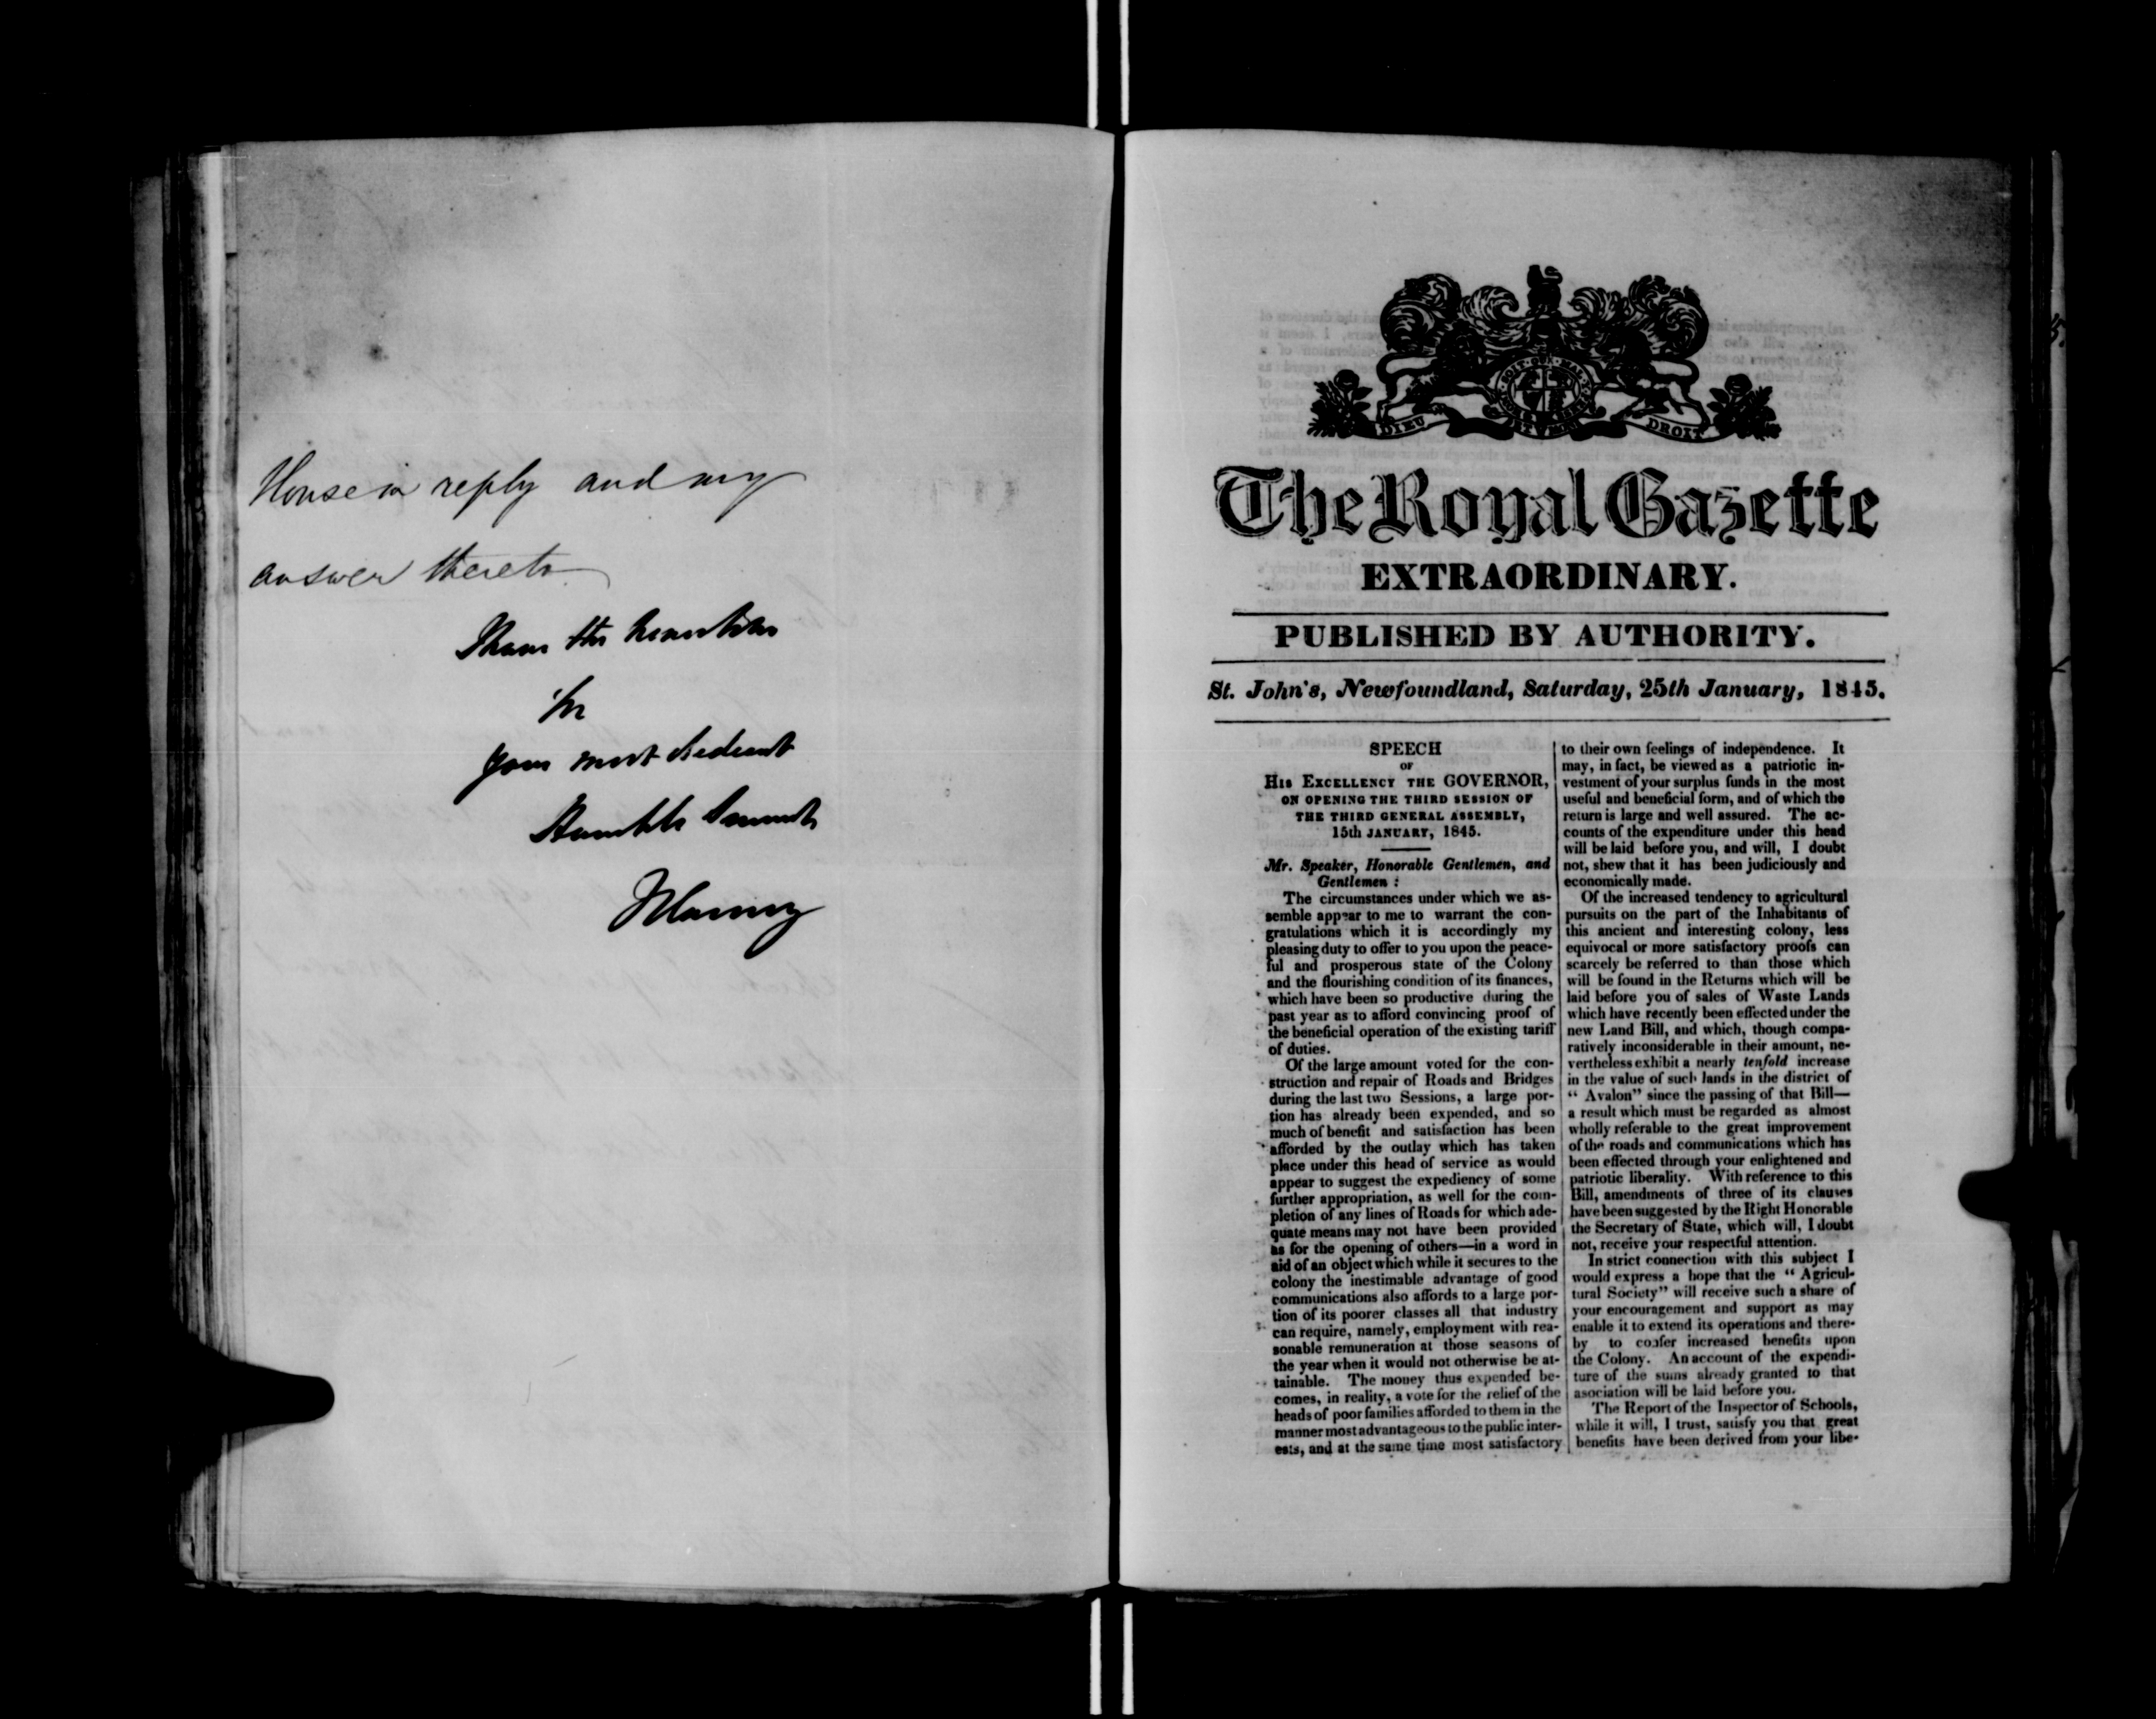 House in reply and my
answer thereto
I have the honor to be
Sir
Your most obedient
Humble Servant
J Harvey
DIEU ET MON DROIT
The Royal Gazette
EXTRAORDINARY.
PUBLISHED BY AUTHORITY.
St. John's, Newfoundland, Saturday, 25th January, 1845.
SPEECH
OF
HIS EXCELLENCY THE GOVERNOR,
ON OPENING THE THIRD SESSION OF
THE THIRD GENERAL ASSEMBLY,
15th JANUARY, 1845.
Mr. Speaker, Honorable Gentlemen, and
Gentlemen :
The circumstances under which we as-
semble appear to me to warrant the con-
gratulations which it is accordingly my
pleasing duty to offer to you upon the peace-
ful and prosperous state of the Colony
and the flourishing condition of its finances,
which have been so productive during the
past year as to afford convincing proof of
the beneficial operation of the existing tariff
of duties.
Of the large amount voted for the con-
struction and repair of Roads and Bridges
during the last two Sessions, a large por-
tion has already been expended, and so
much of benefit and satisfaction has been
afforded by the outlay which has taken
place under this head of service as would
appear to suggest the expediency of some
further appropriation, as well for the com-
pletion of any lines of Roads for which ade-
quate means may not have been provided
as for the opening of others—in a word in
aid of an object which while it secures to the
colony the inestimable advantage of good
communications also affords to a large por-
tion of its poorer classes all that industry
can require, namely, employment with rea-
sonable remuneration at those seasons of
the year when it would not otherwise be at-
tainable. The money thus expended be-
comes, in reality, a vote for the relief of the
heads of poor families afforded to them in the
manner most advantageous to the public inter-
ests, and at the same time most satisfactory
to their own feelings of independence. It
may, in fact, be viewed as a patriotic in-
vestment of your surplus funds in the most
useful and beneficial form, and of which the
return is large and well assured. The ac-
counts of the expenditure under this head
will be laid before you, and will, I doubt
not, shew that it has been judiciously and
economically made.
Of the increased tendency to agricultural
pursuits on the part of the Inhabitants of
this ancient and interesting colony, less
equivocal or more satisfactory proofs can
scarcely be referred to than those which
will be found in the Returns which will be
laid before you of sales of Waste Lands
which have recently been effected under the
new Land Bill, and which, though compa-
ratively inconsiderable in their amount, ne-
vertheless exhibit a nearly tenfold increase
in the value of such lands in the district of
“ Avalon” since the passing of that Bill—
a result which must be regarded as almost
wholly referable to the great improvement
of the roads and communications which has
been effected through your enlightened and
patriotic liberality. With reference to this
Bill, amendments of three of its clauses
have been suggested by the Right Honorable
the Secretary of State, which will, I doubt
not, receive your respectful attention.
In strict connection with this subject I
would express a hope that the “ Agricul-
tural Society” will receive such a share of
your encouragement and support as may
enable it to extend its operations and there-
by to confer increased benefits upon
the Colony. An account of the expendi-
ture of the sums already granted to that
asociation will be laid before you.
The Report of the Inspector of Schools,
while it will, I trust, satisfy you that great
benefits have been derived from your libe-